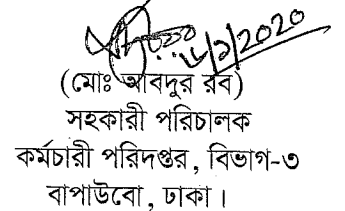 ৮/১/২০২০
(মোঃ আবদুর রব)
সহকারী পরিচালক
কর্মচারী পরিদপ্তর, বিভাগ-৩
বাপাউবো, ঢাকা।